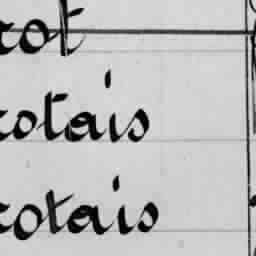 rot
rotais
rotais